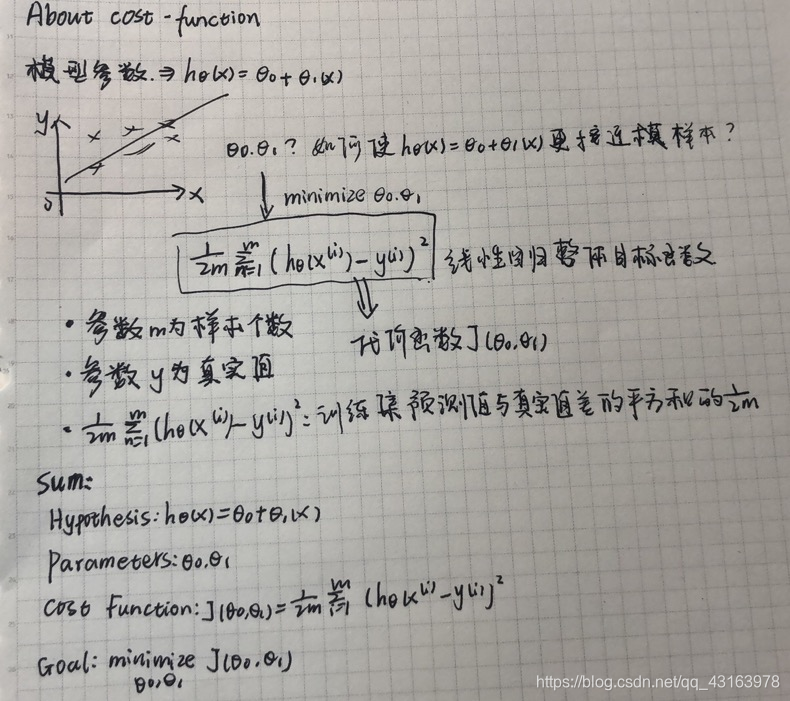 About cost-function
模型参数.⇒ hθ(x)=θ0+θ1(x)
y
0
x
θ0.θ1? 如何使hθ(x)=θ0+θ1(x)更接近模样本?
minimize θ0.θ1
1/2m m∑n=1 (hθ(x^(i))-y^(i))^2 线性回归整体目标函数
代价函数J(θ0.θ1)
• 参数m为样本个数
• 参数y为真实值
• 1/2m m∑n=1 (hθ(x^(i))-y^(i))^2: 训练集预测值与真实值差的平方和的1/2m
Sum:
Hypothesis: hθ(x)=θ0+θ1(x)
Parameters: θ0.θ1
cost Function: J(θ0,θ1)=1/2m m∑i=1 (hθ(x^(i))-y^(i))^2
Goal: minimize J(θ0.θ1)
θ0,θ1
https://blog.csdn.net/qq_43163978